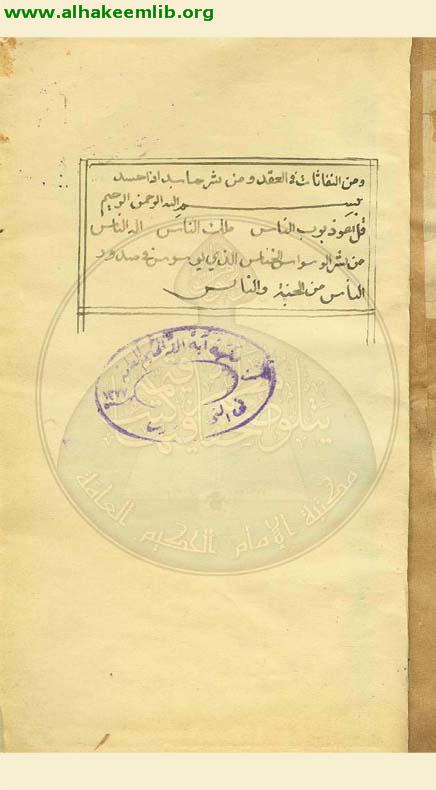 www.alhakeemlib.org
ومن النفاثات في العقد ومن شر حاسد اذا حسد
بسم الله الرحمن الرحيم
قل اعوذ برب الناس ملك الناس اله الناس
من شر الوسواس الخناس الذي يوسوس في صدور
الناس من الجنة والناس
مكتبة آية الله الحكيم العامة
١٣٧٧
مكتبة الإمام الحكيم العامة